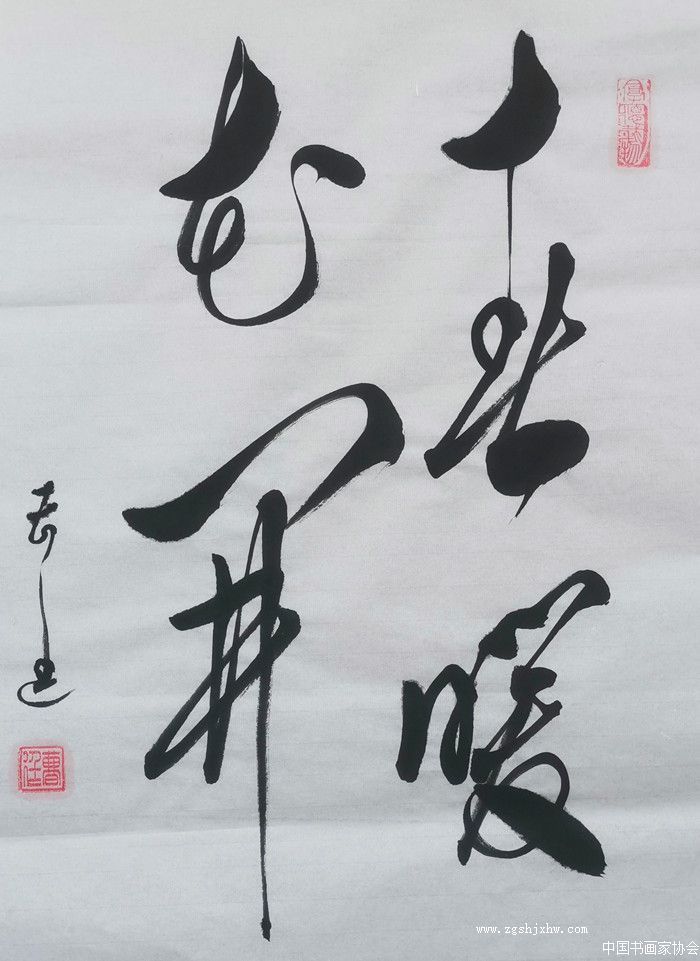 春暖
花開
www.zgshjxhw.com
中国书画家协会